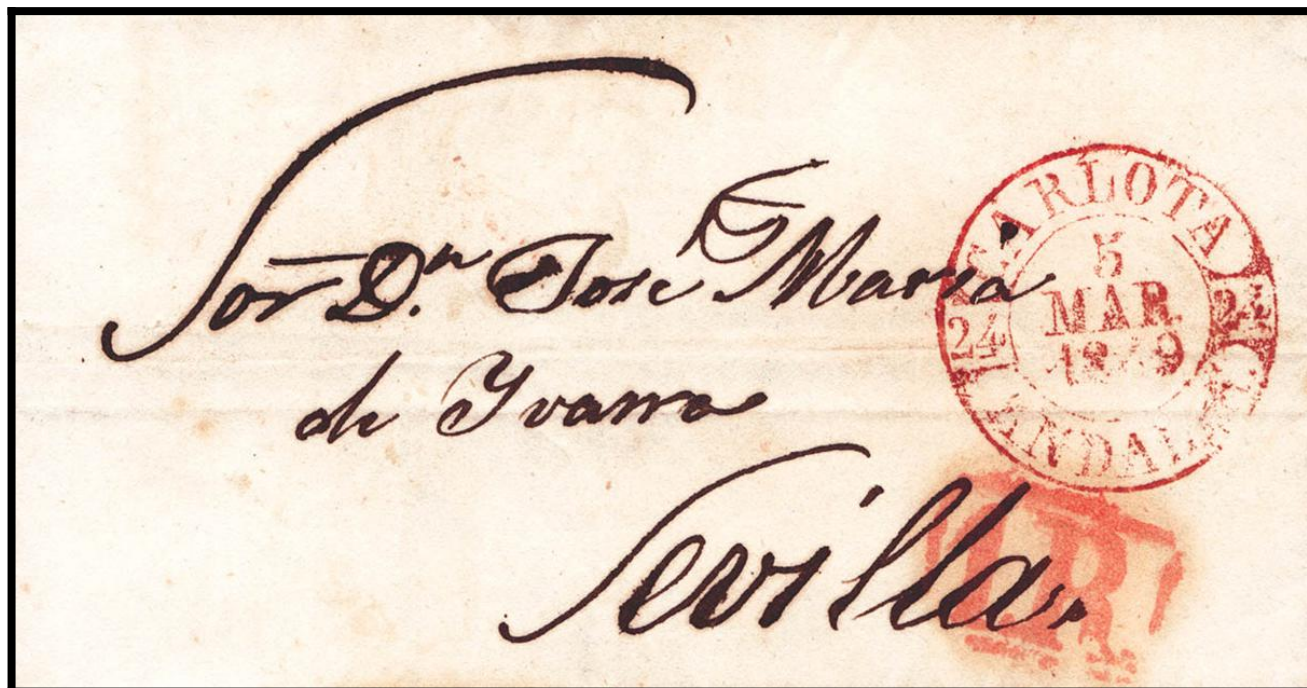 Sor Dn. José Maria
de Yvarra
Sevilla.
CARLOTA
5
MAR
1849
24
24
1R